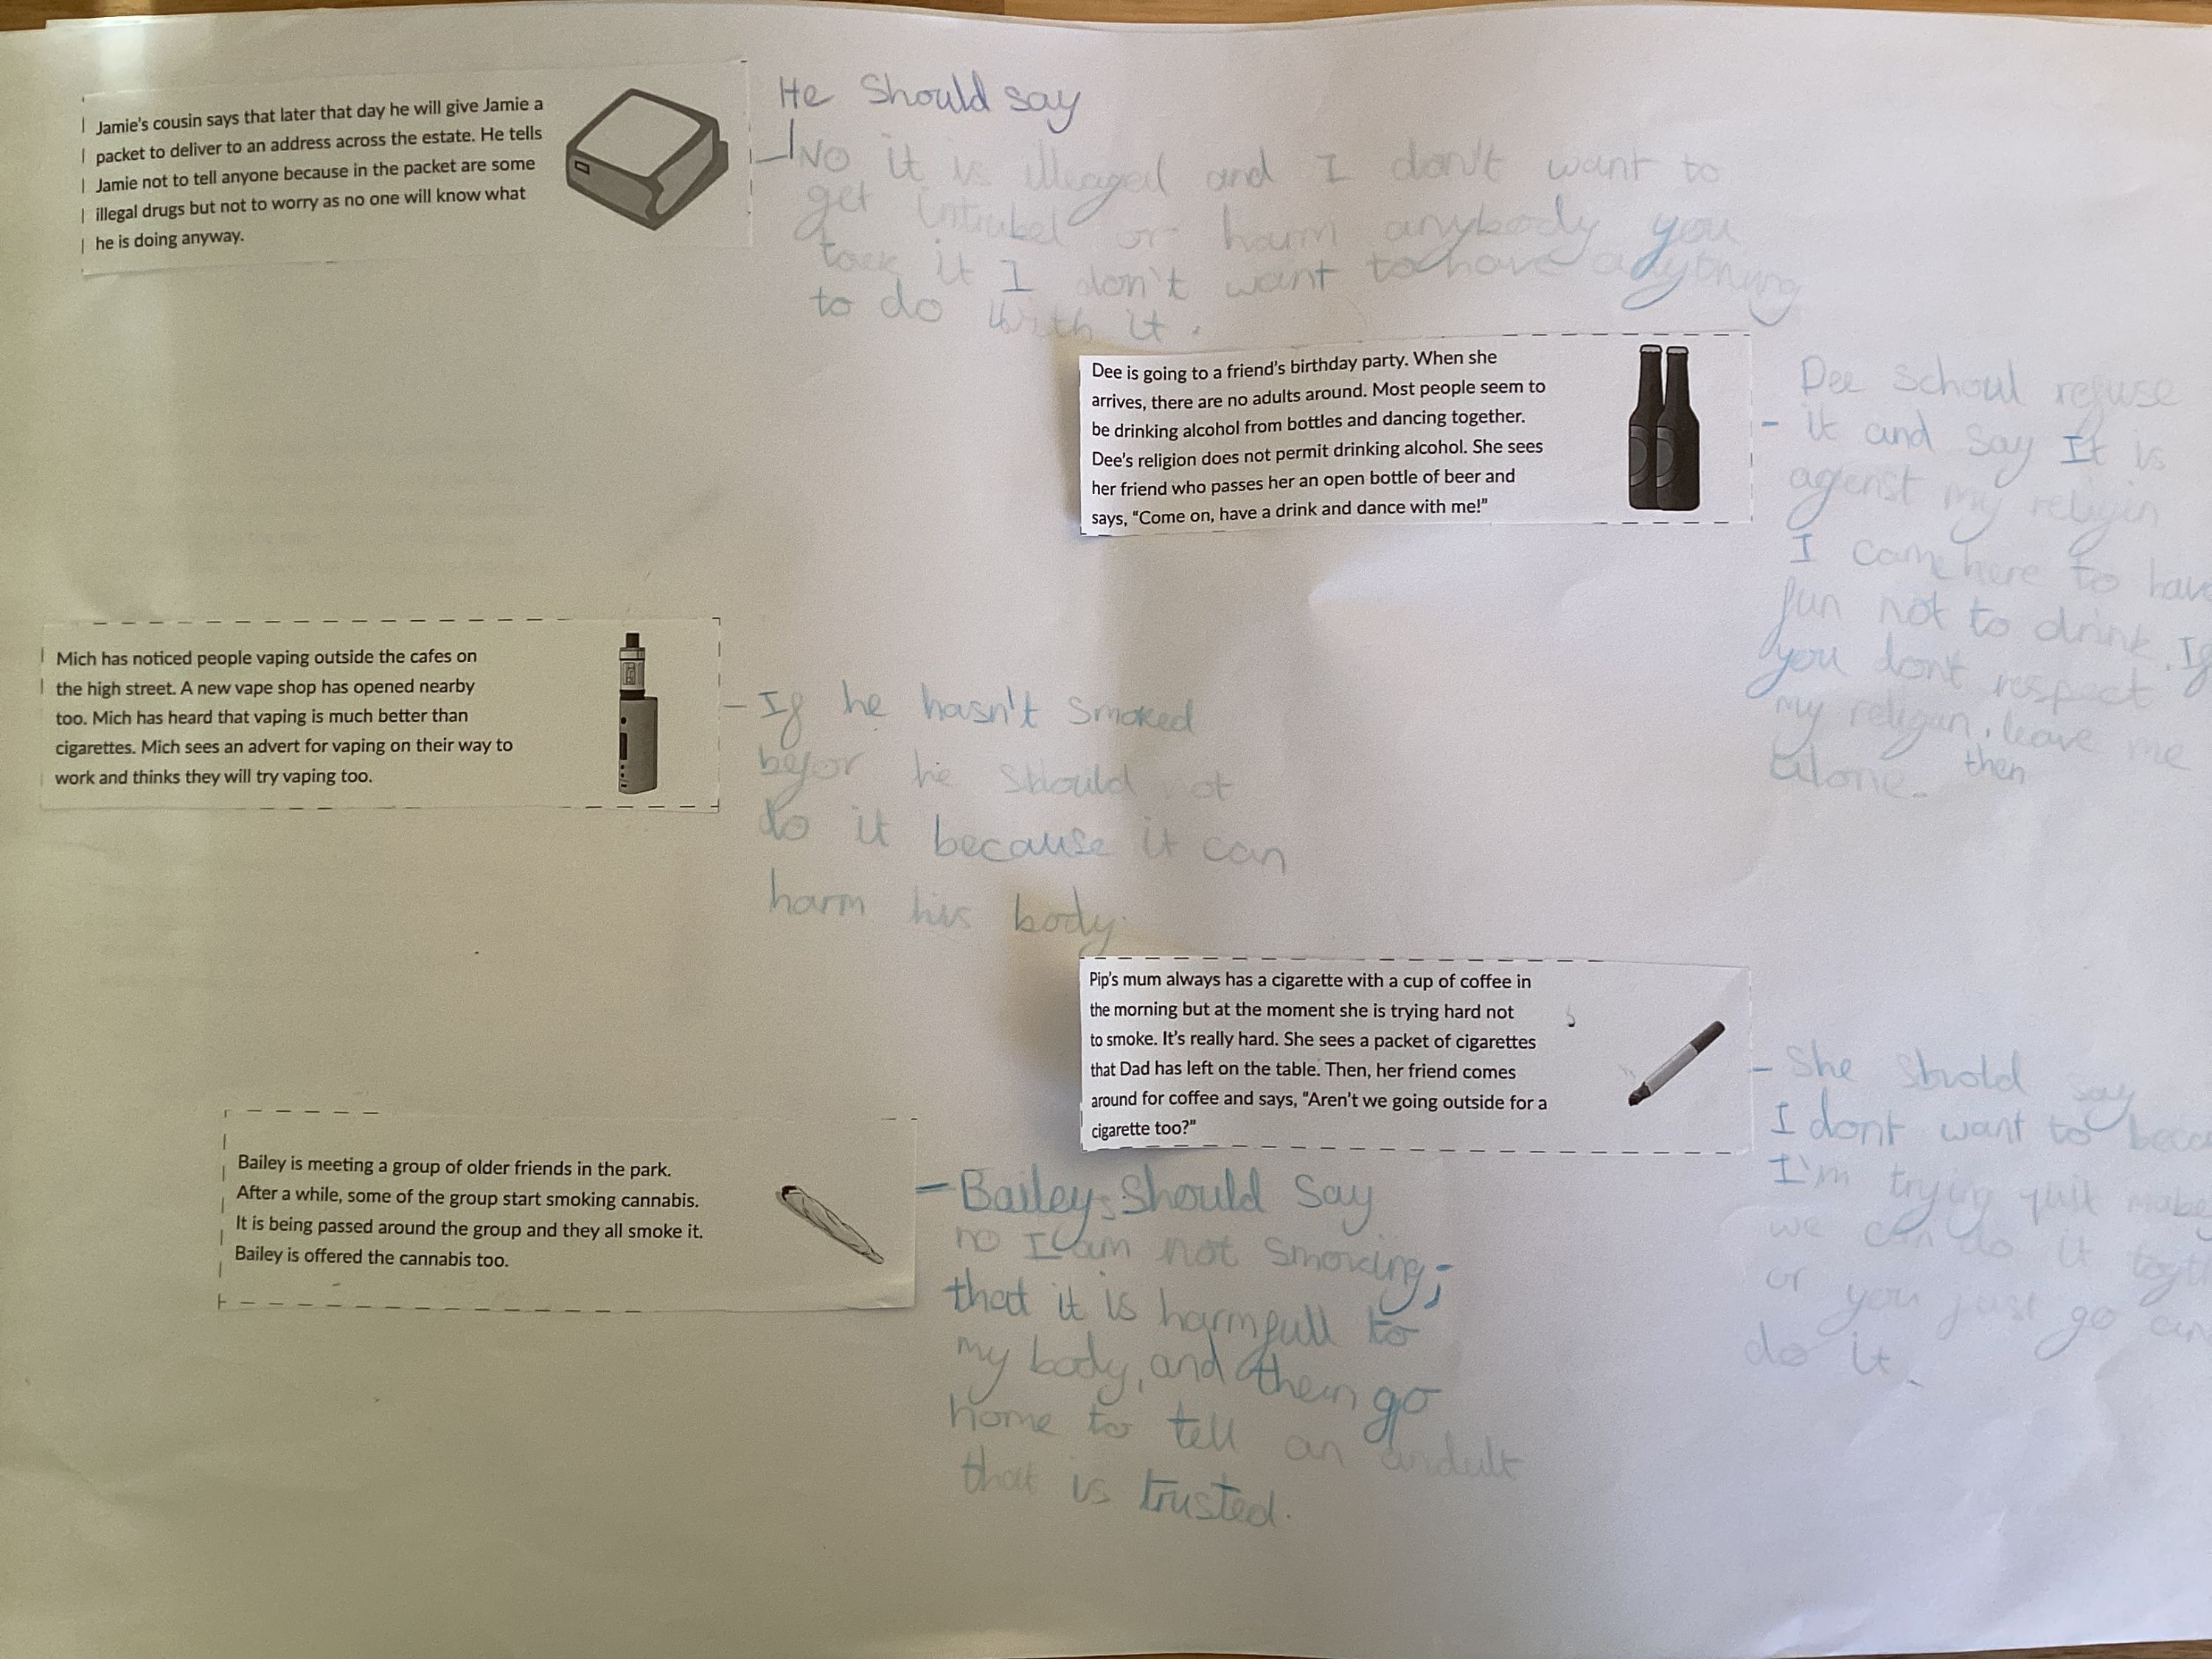 Jamie's cousin says that later that day he will give Jamie a
packet to deliver to an address across the estate. He tells
Jamie not to tell anyone because in the packet are some
illegal drugs but not to worry as no one will know what
he is doing anyway.
He Should say
- No it is illeaged and I don't want to
get intrubel or harm anybody you
took it I don't want to have anything
to do with it.
Dee is going to a friend's birthday party. When she
arrives, there are no adults around. Most people seem to
be drinking alcohol from bottles and dancing together.
Dee's religion does not permit drinking alcohol. She sees
her friend who passes her an open bottle of beer and
says, "Come on, have a drink and dance with me!"
Dee Schoul refuse
- it and say It is
agenst my religin
I came here to have
fun not to drink. If
you don't respect
my religan, leave me
alone. then
Mich has noticed people vaping outside the cafes on
the high street. A new vape shop has opened nearby
too. Mich has heard that vaping is much better than
cigarettes. Mich sees an advert for vaping on their way to
work and thinks they will try vaping too.
- If he hasn't smoked
befor he should not
do it because it can
harm his body.
Pip's mum always has a cigarette with a cup of coffee in
the morning but at the moment she is trying hard not
to smoke. It's really hard. She sees a packet of cigarettes
that Dad has left on the table. Then, her friend comes
around for coffee and says, "Aren't we going outside for a
cigarette too?"
- She shold say
I dont want to beca
I'm trying quit mabey
we can do it togth
or you just go an
do it.
Bailey is meeting a group of older friends in the park.
After a while, some of the group start smoking cannabis.
It is being passed around the group and they all smoke it.
Bailey is offered the cannabis too.
- Bailey should say
no I am not smoking;
that it is harmfull to
my body, and then go
home to tell an andult
that is trusted.